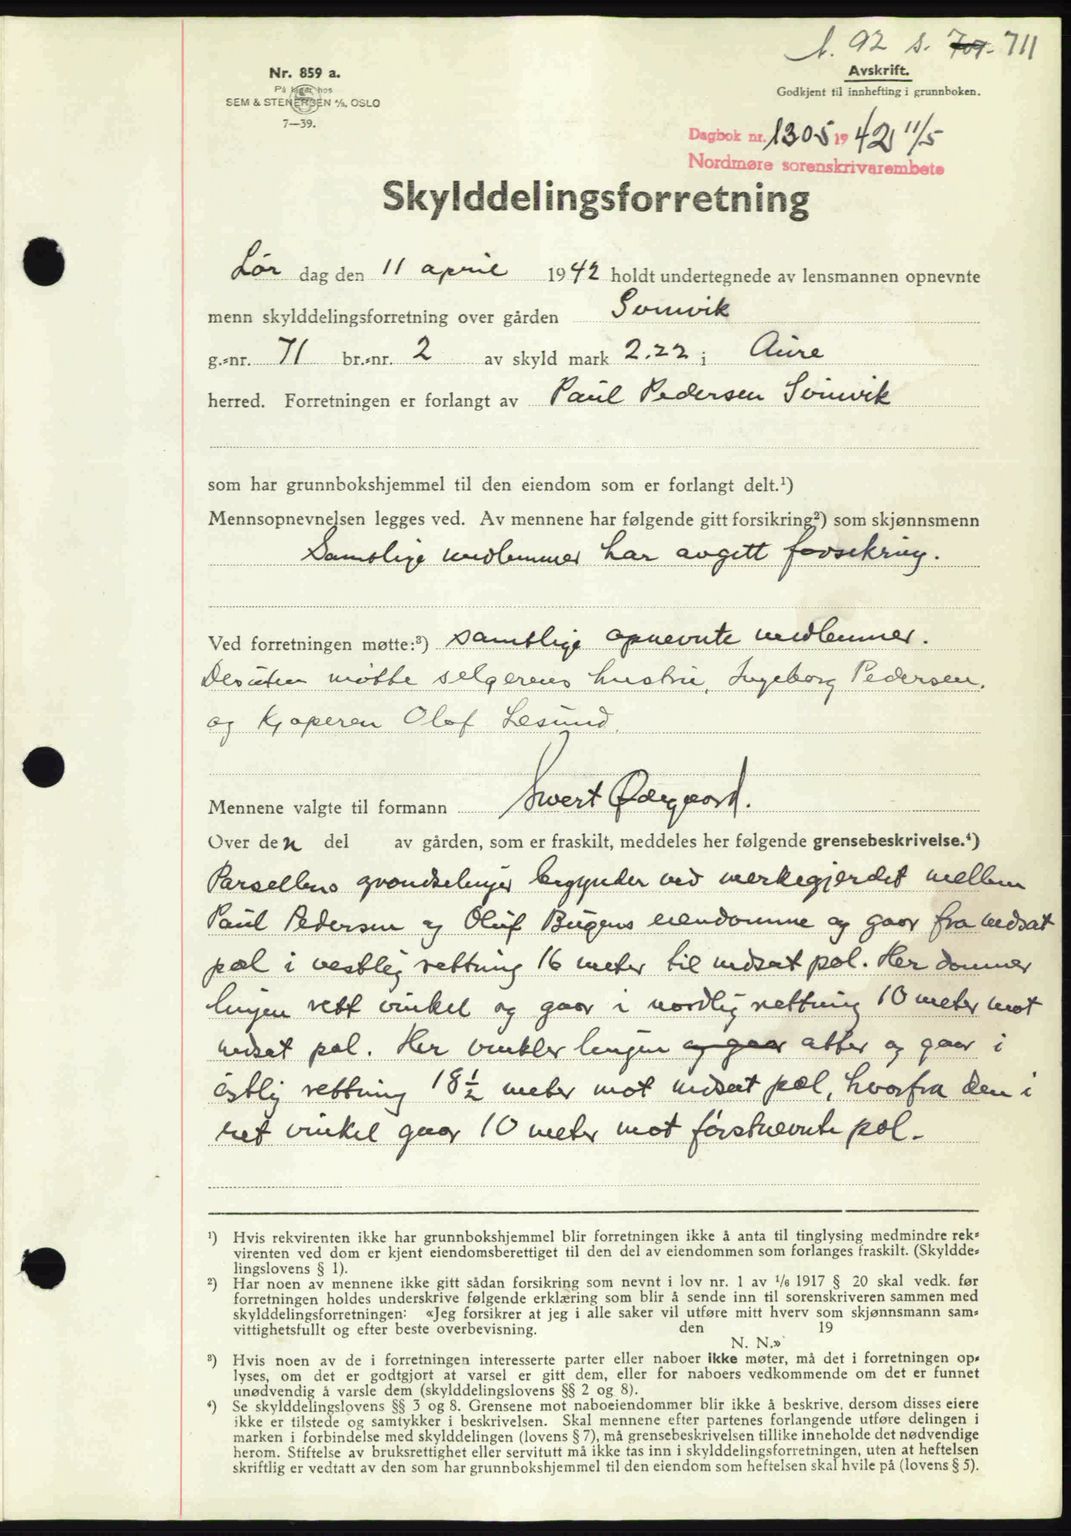 A. 92 s. 707. 711
Nr. 859 a.
På lager hos
SEM & STENERSEN A/S, OSLO
7—39.
Avskrift.
Godkjent til innhefting i grunnboken.
Dagbok nr. 1305 1942 11/5
Nordmøre sorenskrivarembete
Skylddelingsforretning
Lør dag den 11 april 1942 holdt undertegnede av lensmannen opnevnte
menn skylddelingsforretning over gården Somvik
g.-nr. 71 br.-nr. 2 av skyld mark 2.22 i Aure
herred. Forretningen er forlangt av Paul Pedersen
som har grunnbokshjemmel til den eiendom som er forlangt delt.¹)
Mennsopnevnelsen legges ved. Av mennene har følgende gitt forsikring²) som skjønnsmenn
Samtlige medlemmer har avgitt forsikring.
Ved forretningen møtte:³) samtlige opnevnte medlemmer.
Desuten møtte selgerens hustru, Ingeborg Pedersen,
og kjøperen Olaf Lesund.
Mennene valgte til formann Sivert Ødegaard.
Over den del av gården, som er fraskilt, meddeles her følgende grensebeskrivelse.⁴)
Parsellens grændselinjer begynder ved merkegjerdet mellem
Paul Pedersen og Oluf eiendomme og gaar fra nedsat
pæl i vestlig rettning 16 meter til nedsat pæl. Her danner
linjen rett vinkel og gaar i nordlig rettning 10 meter mot
nedsat pæl. Her vinkler linjen og gaar atter og gaar i
østlig rettning 18 ½ meter mot nedsat pæl, hvorfra den i
ret vinkel gaar 10 meter mot førstnevnte pæl.
¹) Hvis rekvirenten ikke har grunnbokshjemmel blir forretningen ikke å anta til tinglysing medmindre rek-
virenten ved dom er kjent eiendomsberettiget til den del av eiendommen som forlanges fraskilt. (Skyldde-
lingslovens § 1).
²) Har noen av mennene ikke gitt sådan forsikring som nevnt i lov nr. 1 av 1/6 1917 § 20 skal vedk. før
forretningen holdes underskrive følgende erklæring som blir å sende inn til sorenskriveren sammen med
skylddelingsforretningen: «Jeg forsikrer at jeg i alle saker vil utføre mitt hverv som skjønnsmann sam-
vittighetsfullt og efter beste overbevisning. den 19
N. N.»
³) Hvis noen av de i forretningen interesserte parter eller naboer ikke møter, må det i forretningen op-
lyses, om det er godtgjort at varsel er gitt dem, eller for naboers vedkommende om det er funnet
unødvendig å varsle dem (skylddelingslovens §§ 2 og 8).
⁴) Se skylddelingslovens §§ 3 og 8. Grensene mot naboeiendommer blir ikke å beskrive, dersom disses eiere
ikke er tilstede og samtykker i beskrivelsen. Skal mennene efter partenes forlangende utføre delingen i
marken i forbindelse med skylddelingen (lovens § 7), må grensebeskrivelsen tillike inneholde det nødvendige
herom. Stiftelse av bruksrettighet eller servitutt må ikke tas inn i skylddelingsforretningen, uten at heftelsen
skriftlig er vedtatt av den som har grunnbokshjemmel til den eiendom som heftelsen skal hvile på (lovens § 5).